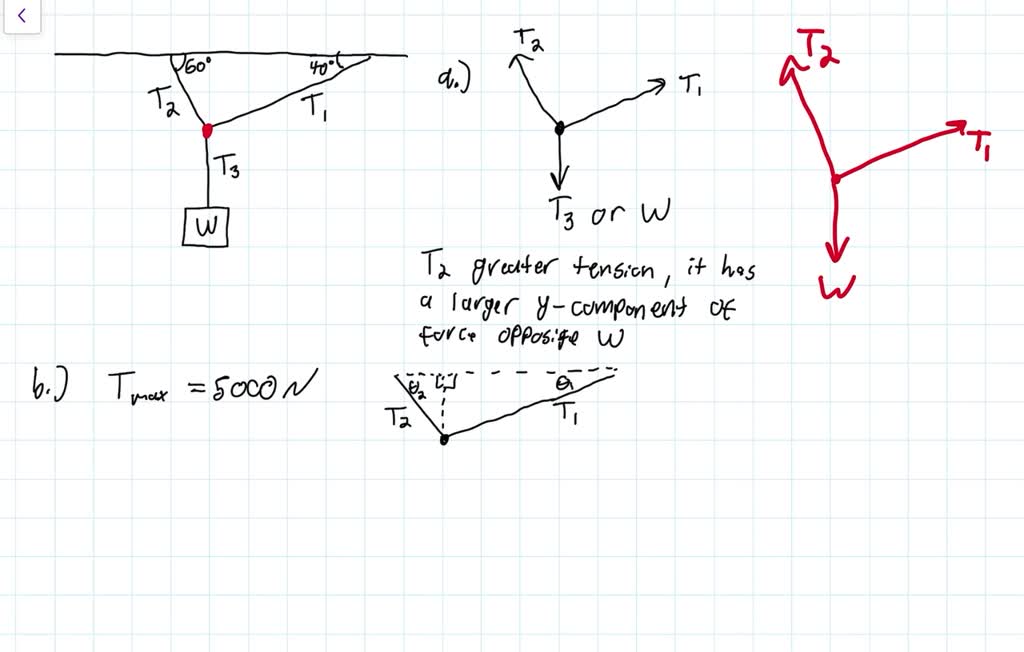 60° 40°
T2 T1
T3
W
a.) T2 T1
T3 or W
T2 T1
W
T2 greater tension, it has
a larger y-component of
force opposite W
b.) Tmax = 5000 N
θ2 θ1
T2 T1